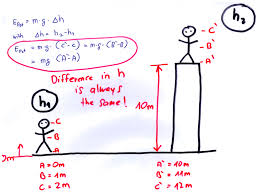 E_Pot = m·g·Δh
with Δh = h₂-h₁
E_Pot = m·g·(C'-C) = m·g·(B'-B)
= m·g·(A'-A)
Difference in h
is always
the same!
h₁
h₂
C'
B'
A'
10m
C
B
A
0m
A = 0m
B = 1m
C = 2m
A' = 10m
B' = 11m
C' = 12m